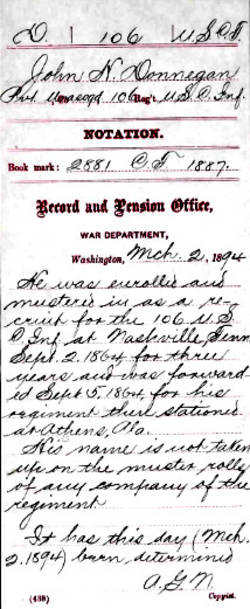 D. | 106 | U.S.C.T.
John H. Donnegan
Pvt Unasgd 106 Reg't U.S.C. Inf.
NOTATION.
Book mark: 2881 C.T. 1887.
Record and Pension Office,
WAR DEPARTMENT,
Washington, Mch. 2, 1894
He was enrolled and
mustered in as a re-
cruit for the 106 U.S.
C. Inf. at Nashville, Tenn
Sept. 2, 1864 for three
years and was forward
ed Sept 5, 1864 for his
regiment then stationed
at Athens, Ala.
His name is not taken
up on the muster rolls
of any company of the
regiment
It has this day (Mch.
2, 1894) been determined
A.G.N.
(438) Copyist.